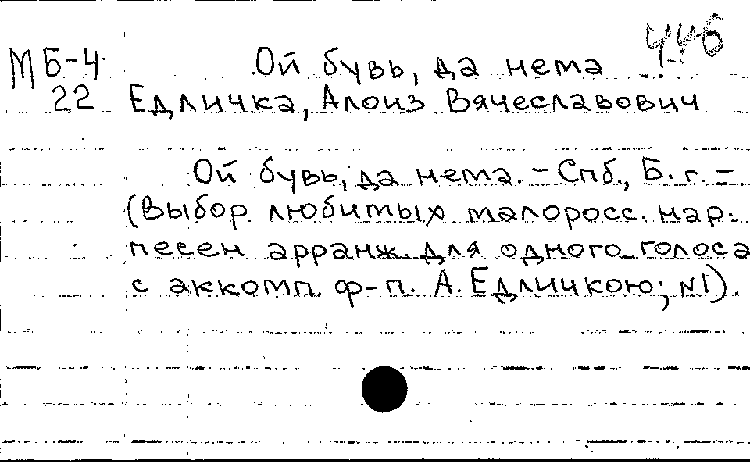 446
МБ-4 Ой бувь, да нема
22 Едличка, Алоиз Вячеславович
Ой бувь, да нема. - Спб., Б. г. -
(Выбор любимых малоросс. нар.
песен арранж. для одного голоса
с аккомп. ф-п. А. Едличкою; №1).